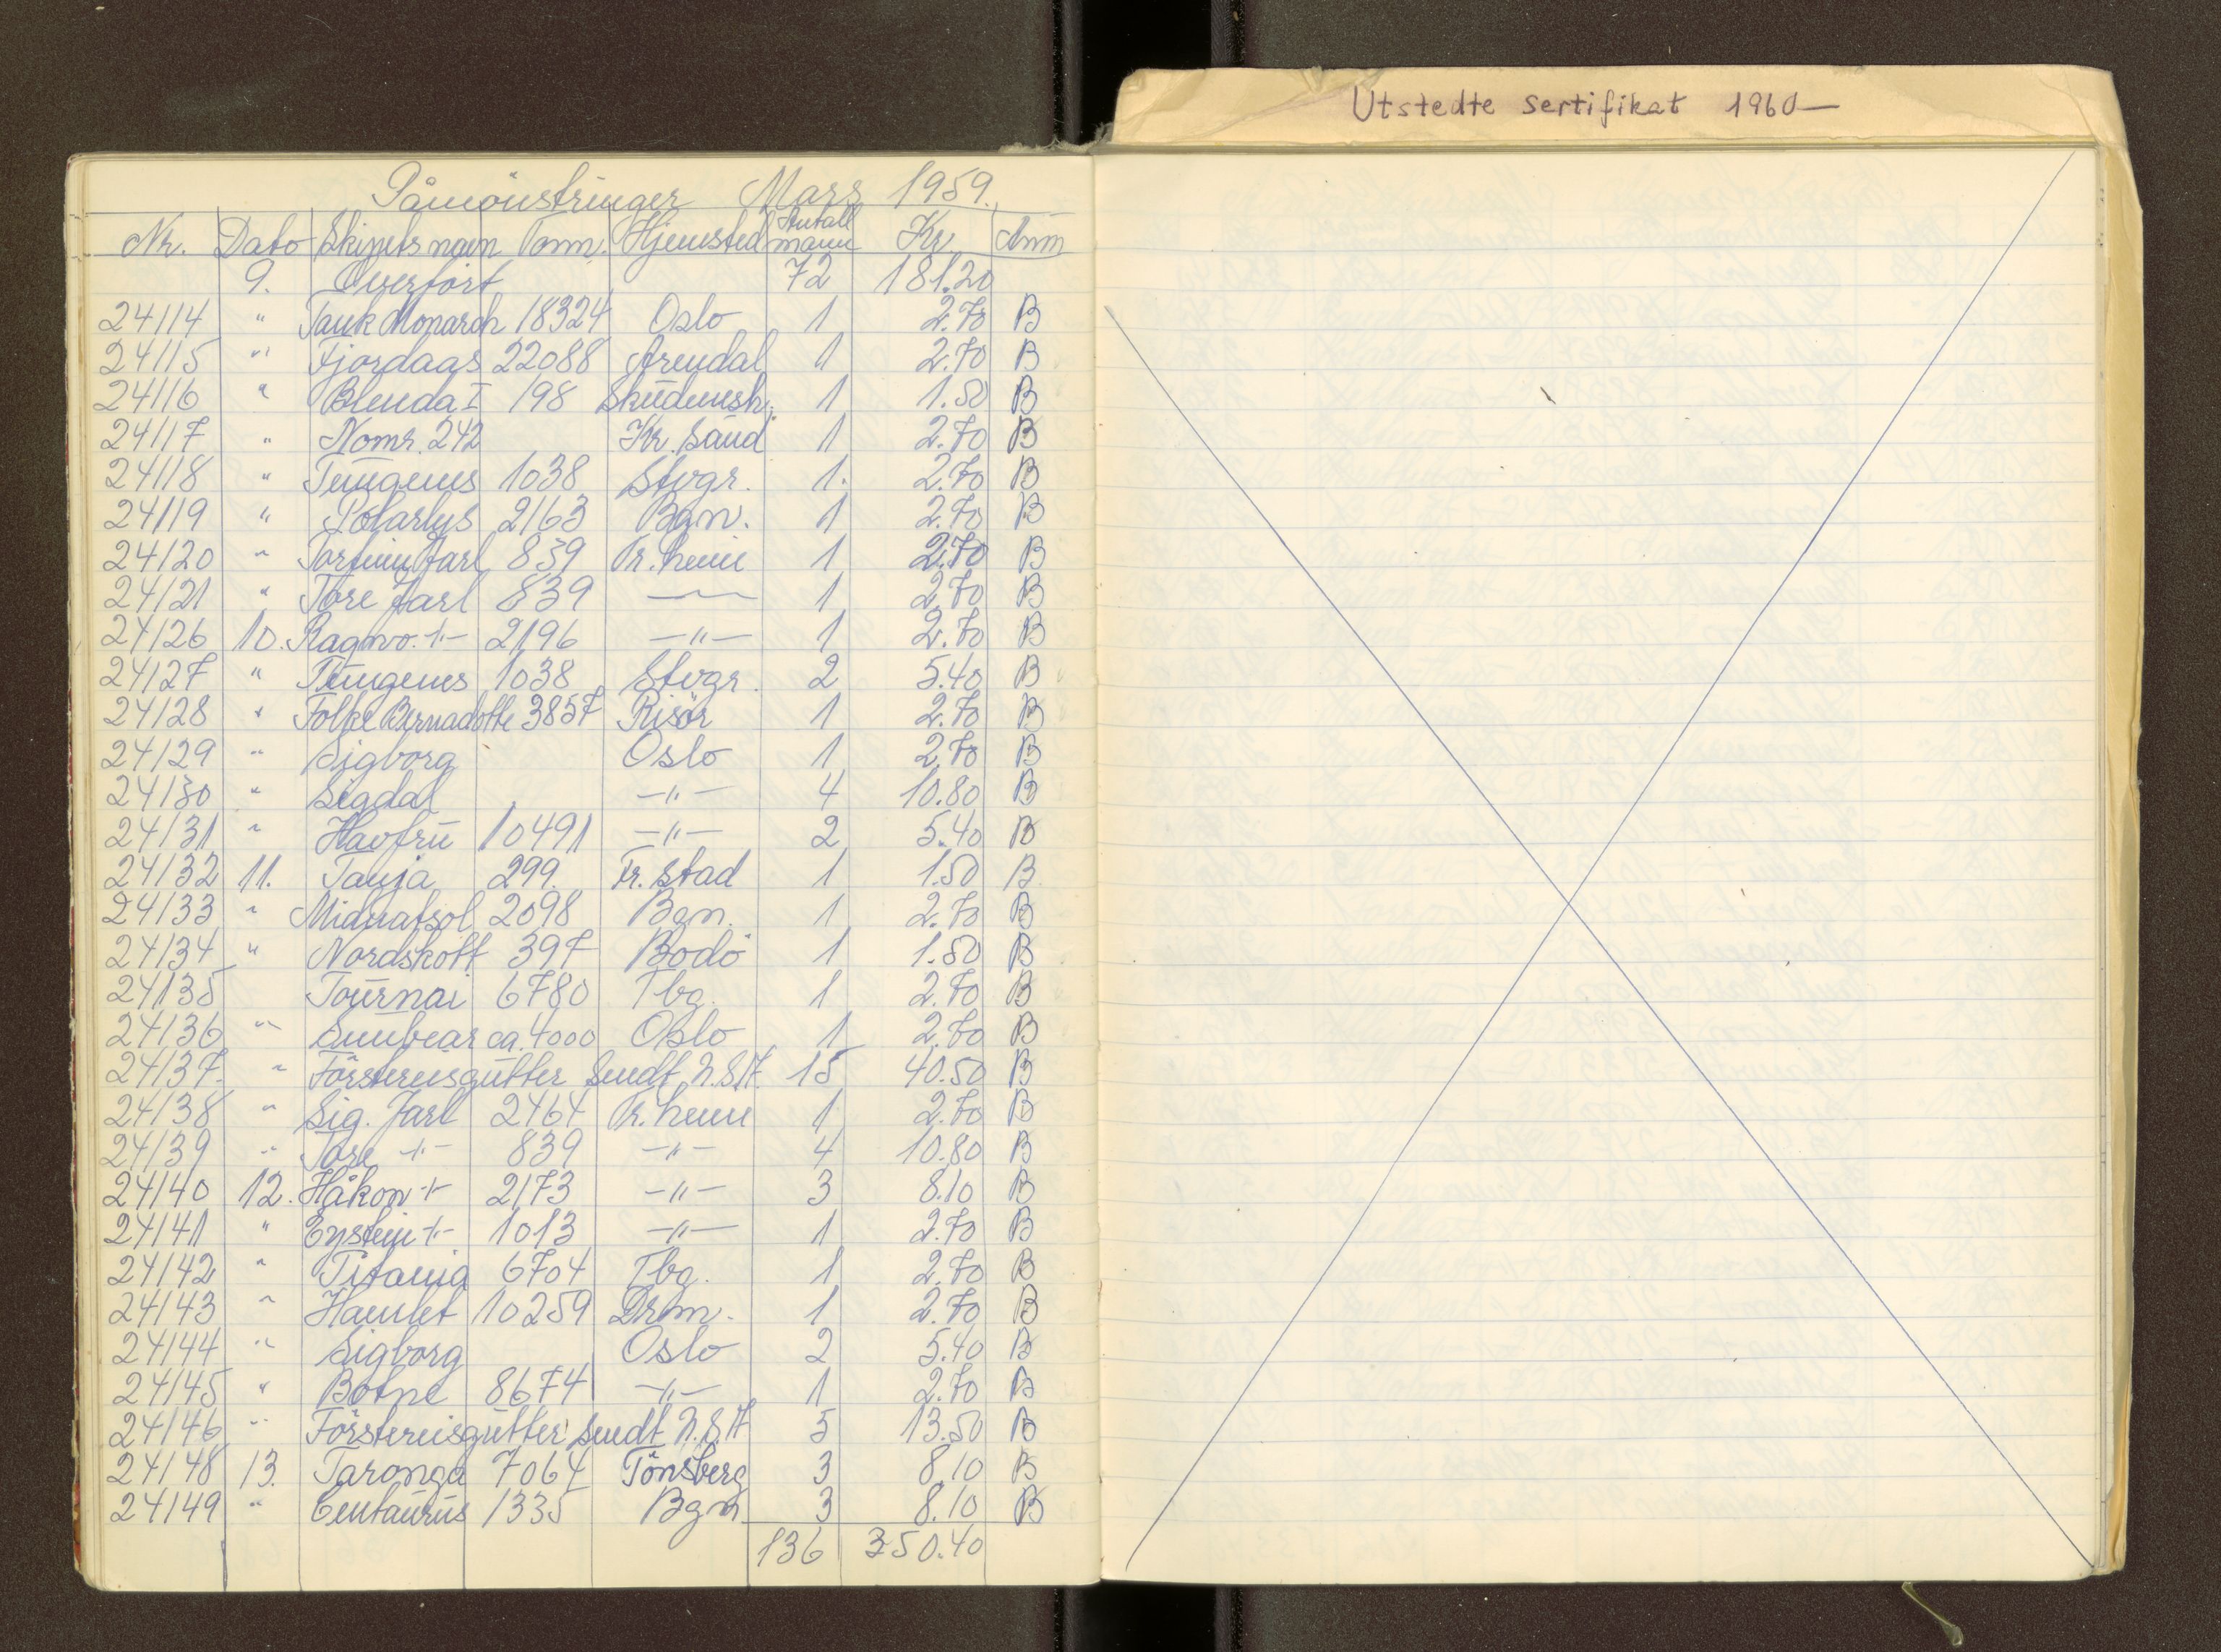 Påmönstringer Mars 1959.
Nr. Dato Skipets navn Tonn. Hjemsted Antall mann Kr. Anm
9. Overfört 72 181.20
24114 " Tank Monarch 18324 Oslo 1 2.70 B
24115 " Fjordaas 22088 Arendal 1 2.70 B
24116 " Blenda I 198 Skudenesh. 1 1.50 B
24117 " Nomr. 242 Kr. Sand 1 2.70 B
24118 " Tungenes 1038 Stvgr. 1. 2.70 B
24119 " Polarlys 2163 Bgn. 1 2.70 B
24120 " Torfinn Jarl 839 Tr.heim 1 2.70 B
24121 " Tore Jarl 839 — 1 2.70 B
24126 10. Ragnv. -"- 2196 -"- 1 2.70 B
24127 " Tungenes 1038 Stvgr. 2 5.40 B
24128 " Folke Bernadotte 3857 Risör 1 2.70 B
24129 " Sigborg Oslo 1 2.70 B
24130 " Sigdal -"- 4 10.80 B
24131 " Havfru 10491 -"- 2 5.40 B
24132 11. Tanja 299. Fr.stad 1 1.50 B
24133 " Midnatsol 2098 Bgn. 1 2.70 B
24134 " Nordskott 397 Bodö 1 1.50 B
24135 Tournai 6780 Tbg. 1 2.70 B
24136 " Sunbear ca. 4000 Oslo 1 2.70 B
24137. " Förstereisgutter sendt N.S.A. 15 40.50 B
24138 " Sig. Jarl 2464 Tr.heim 1 2.70 B
24139 " Tore -"- 839 -"- 4 10.80 B
24140 12. Håkon -"- 2173 -"- 3 8.10 B
24141 " Eystein -"- 1013 -"- 1 2.70 B
24142 " Titania 6704 Tbg. 1 2.70 B
24143 " Hamlet 10259 Drm. 1 2.70 B
24144 " Sigborg Oslo 2 5.40 B
24145 " Botne 8674 -"- 1 2.70 B
24146 " Förstereisgutter sendt N.S.A 5 13.50 B
24148 13. Taronga 7064 Tönsberg 3 8.10 B
24149 " Centaurus 1335 Bgn. 3 8.10 B
136 350.40
Utstedte sertifikat 1960—